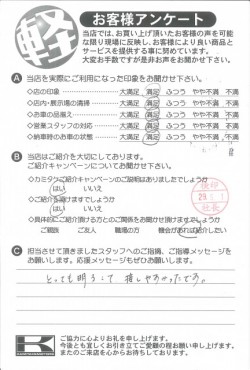 軽
お客様アンケート
当店では、お買い上げ頂いたお客様の声を可能
な限り現場に反映し、お客様により良い商品と
サービスを提供する事に努めています。
大変お手数ですが是非お声をお聞かせ下さい。
A 当店を実際にご利用になった印象をお聞かせ下さい。
◇店の印象 大満足 満足 ふつう やや不満 不満
◇店内・展示場の清掃 大満足 満足 ふつう やや不満 不満
◇お車の品揃え 大満足 満足 ふつう やや不満 不満
◇営業スタッフの対応 大満足 満足 ふつう やや不満 不満
◇納車時のお車の状態 大満足 満足 ふつう やや不満 不満
B 当店はご紹介を大切にしております。
ご紹介キャンペーンについてお聞かせ下さい。
◇カミタウンご紹介キャンペーンのご説明はありましたでしょうか
はい いいえ
◇ご紹介を頂けますでしょうか
はい いいえ
◇具体的にご紹介頂ける方とのご関係をお聞かせ頂けますでしょうか
ご親戚 ご友人 職場の方 機会があれば紹介したい
検印
社長
C 担当させて頂きましたスタッフへのご指摘、ご指導メッセージを
お願いします。応援メッセージもぜひお願いします。
とっても明るくて 接しやすかったです。
K
ご協力に心よりお礼を申し上げます。
今後とも宜しくお引き立てご愛顧の程お願い申し上げます。
またのご来店を心からお待ちしております。